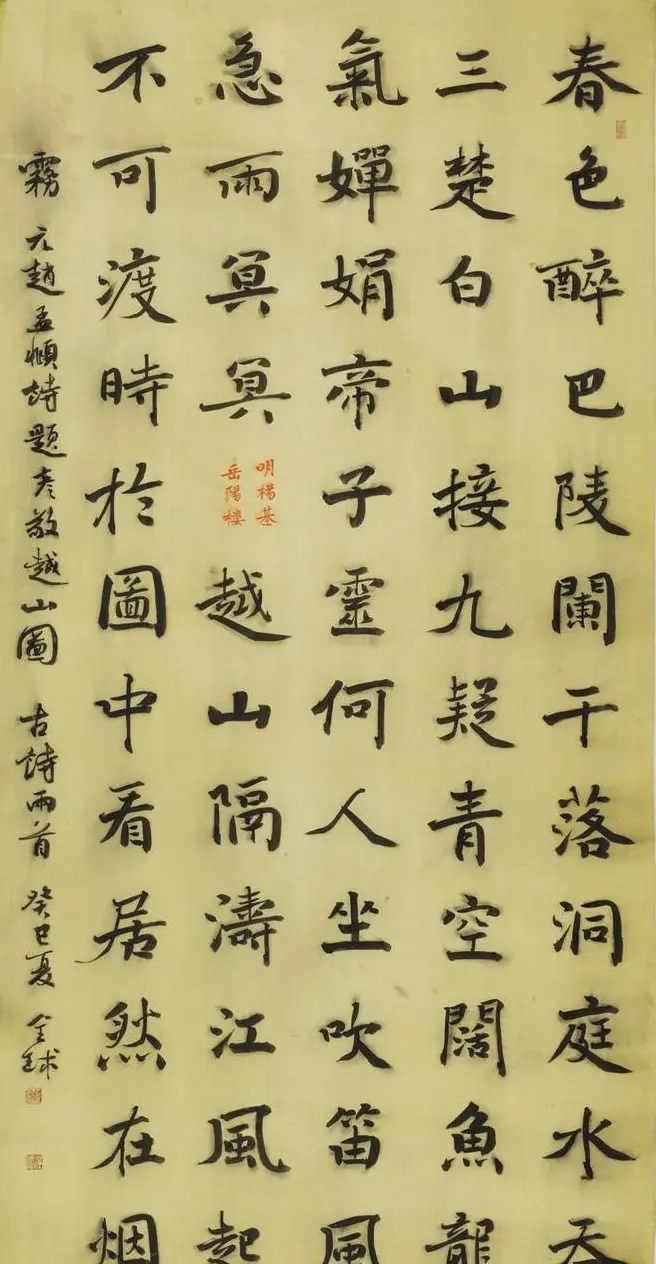 春色醉巴陵闌干落洞庭水吞
三楚白山接九疑青空闊魚龍
氣嬋娟帝子靈何人坐吹笛風
急雨冥冥
明楊基
岳陽樓
越山隔濤江風起
不可渡時於圖中看居然在烟
霧 元趙孟頫詩題彥敬越山圖 古詩兩首 癸巳夏 全球